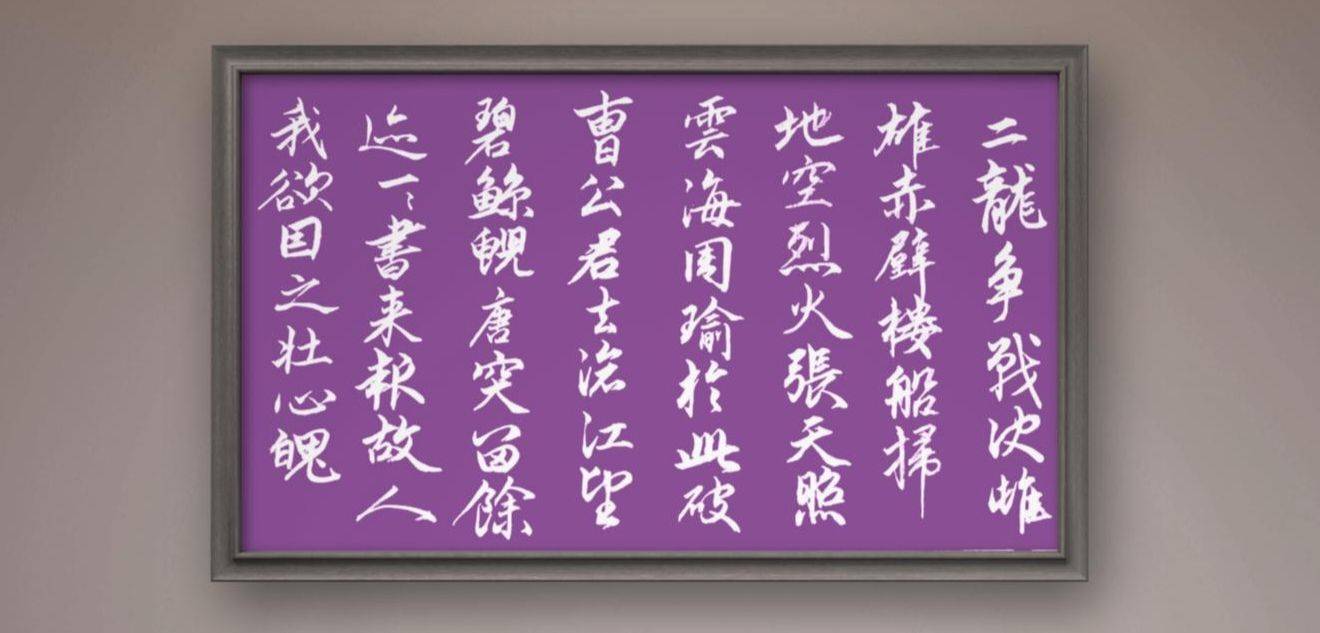 二龍争戰决雌
雄赤壁楼船掃
地空烈火張天照
雲海周瑜於此破
曹公君去滄江望
碧鯨鯢唐突留餘
迹一々書来報故人
我欲因之壮心魄